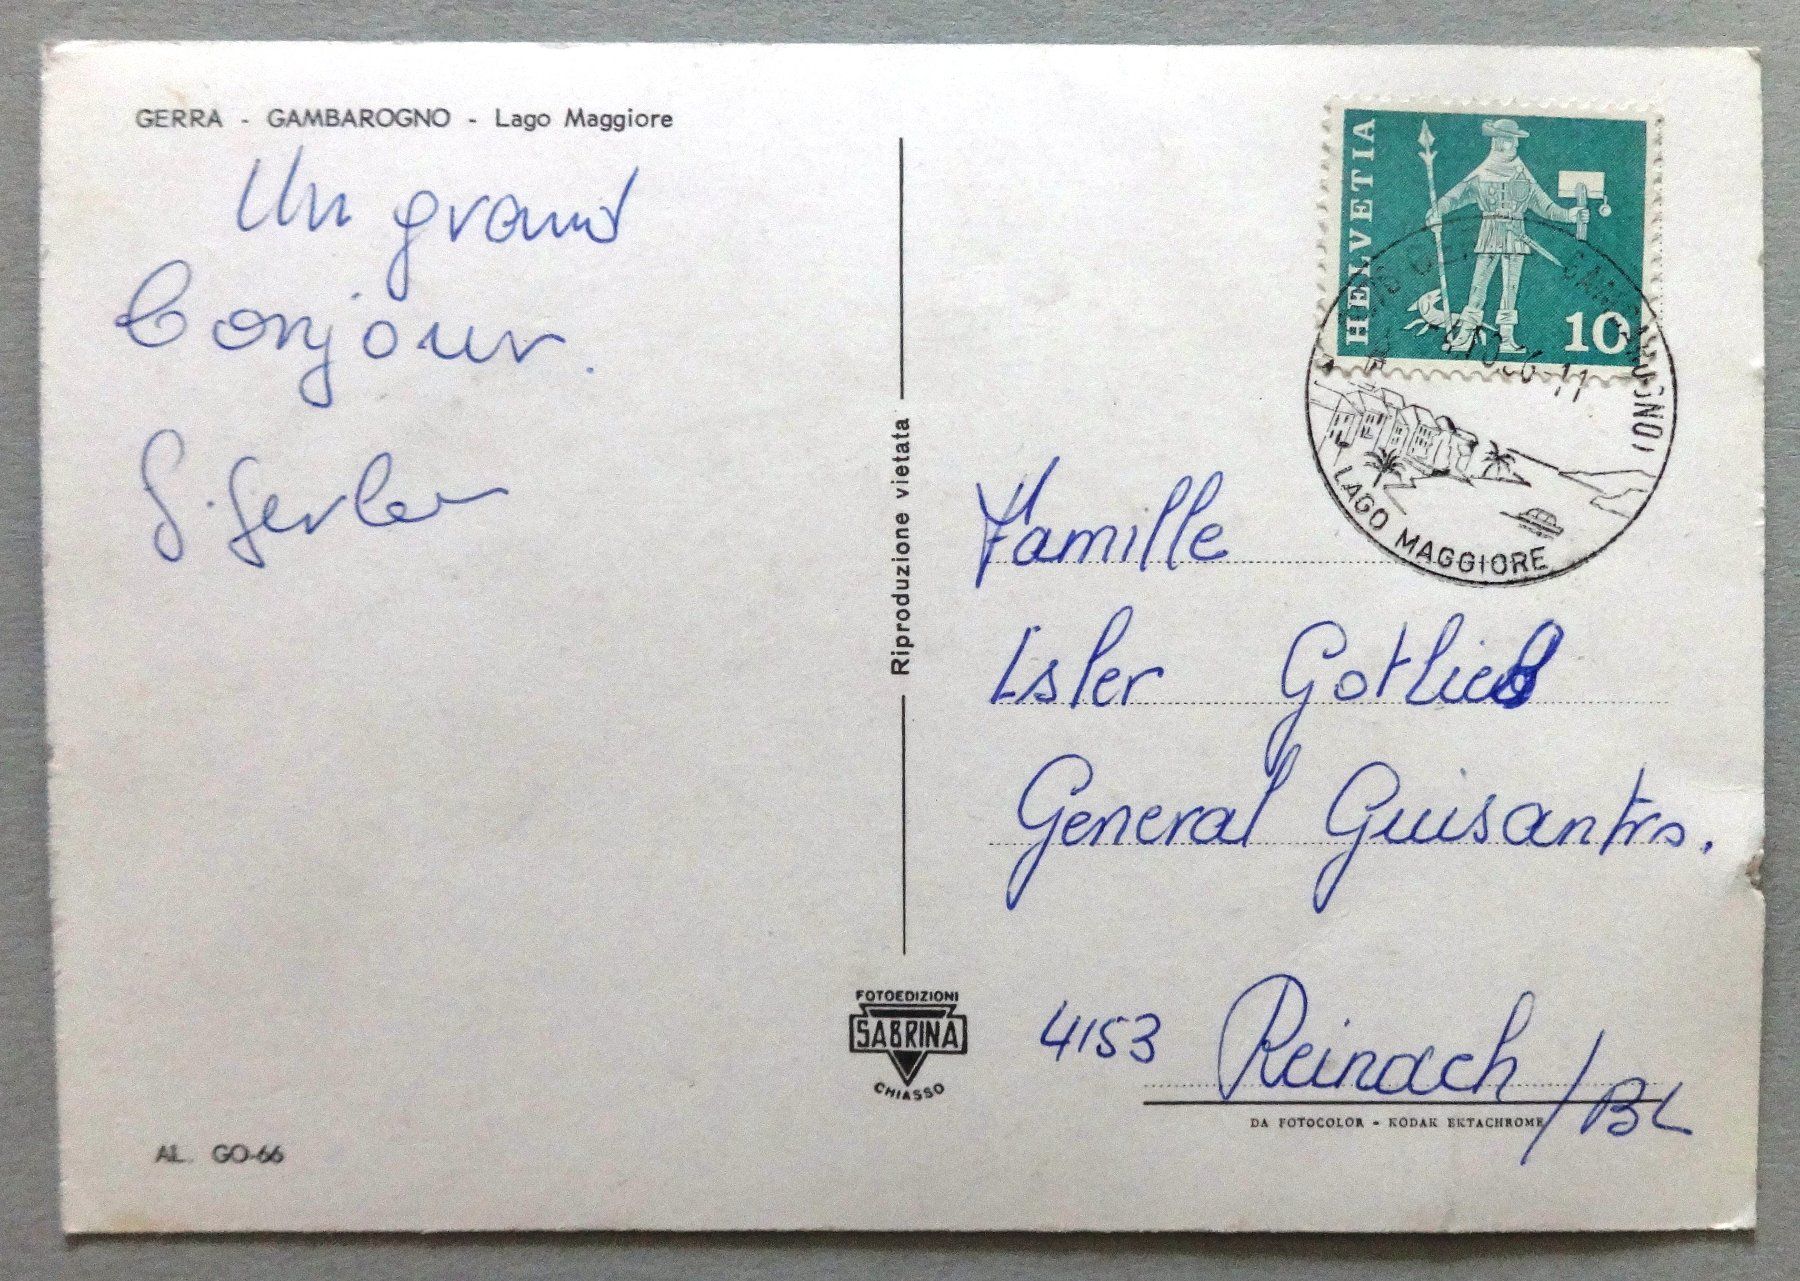 GERRA - GAMBAROGNO - Lago Maggiore
Un grand
bonjour.
Riproduzione vietata
FOTOEDIZIONI
SABRINA
CHIASSO
AL. GO-66
HELVETIA
10
LAGO MAGGIORE
Famille
Isler Gotlieb
General Guisantrs.
4153 Reinach/BL
DA FOTOCOLOR - KODAK EKTACHROME